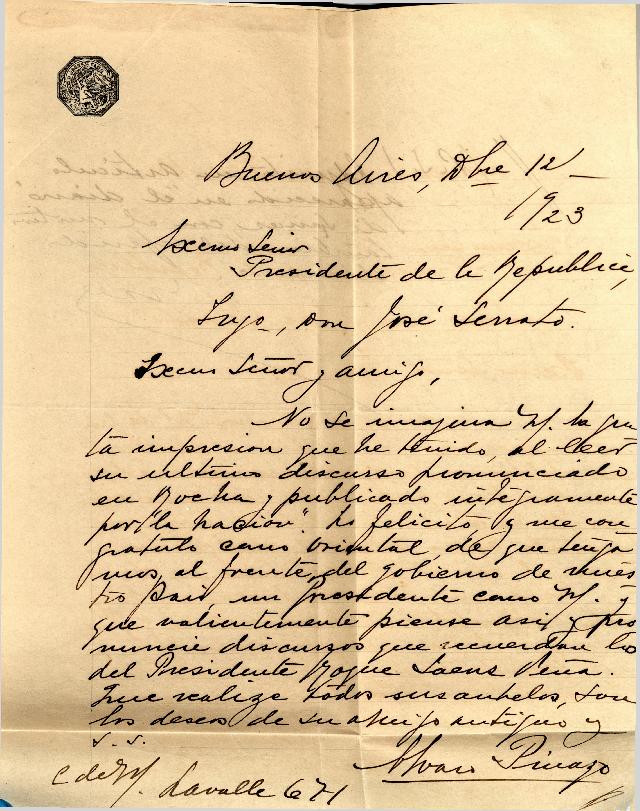 Buenos Aires, Dbre 12
1923
Excmo Señor
Presidente de la Republica,
Ingo, Don José Serrato.
Excmo Señor y amigo,
No se imagina Vd. la gra
ta impresion que he tenido, al leer
su ultimo discurso pronunciado
en Rocha y publicado integramente
por "la Nacion". Lo felicito y me con
gratulo como oriental, de que tenga
mos, al frente del gobierno de nues
tro Pais un Presidente como Vd. y
que valientemente piense asi y pro
nuncie discursos que recuerdan los
del Presidente Roque Saens Peña.
Que realize todos sus anhelos, son
los deseos de su amigo antiguo y
s. s.
Alvaro Pinazo
C de Vd. Lavalle 671